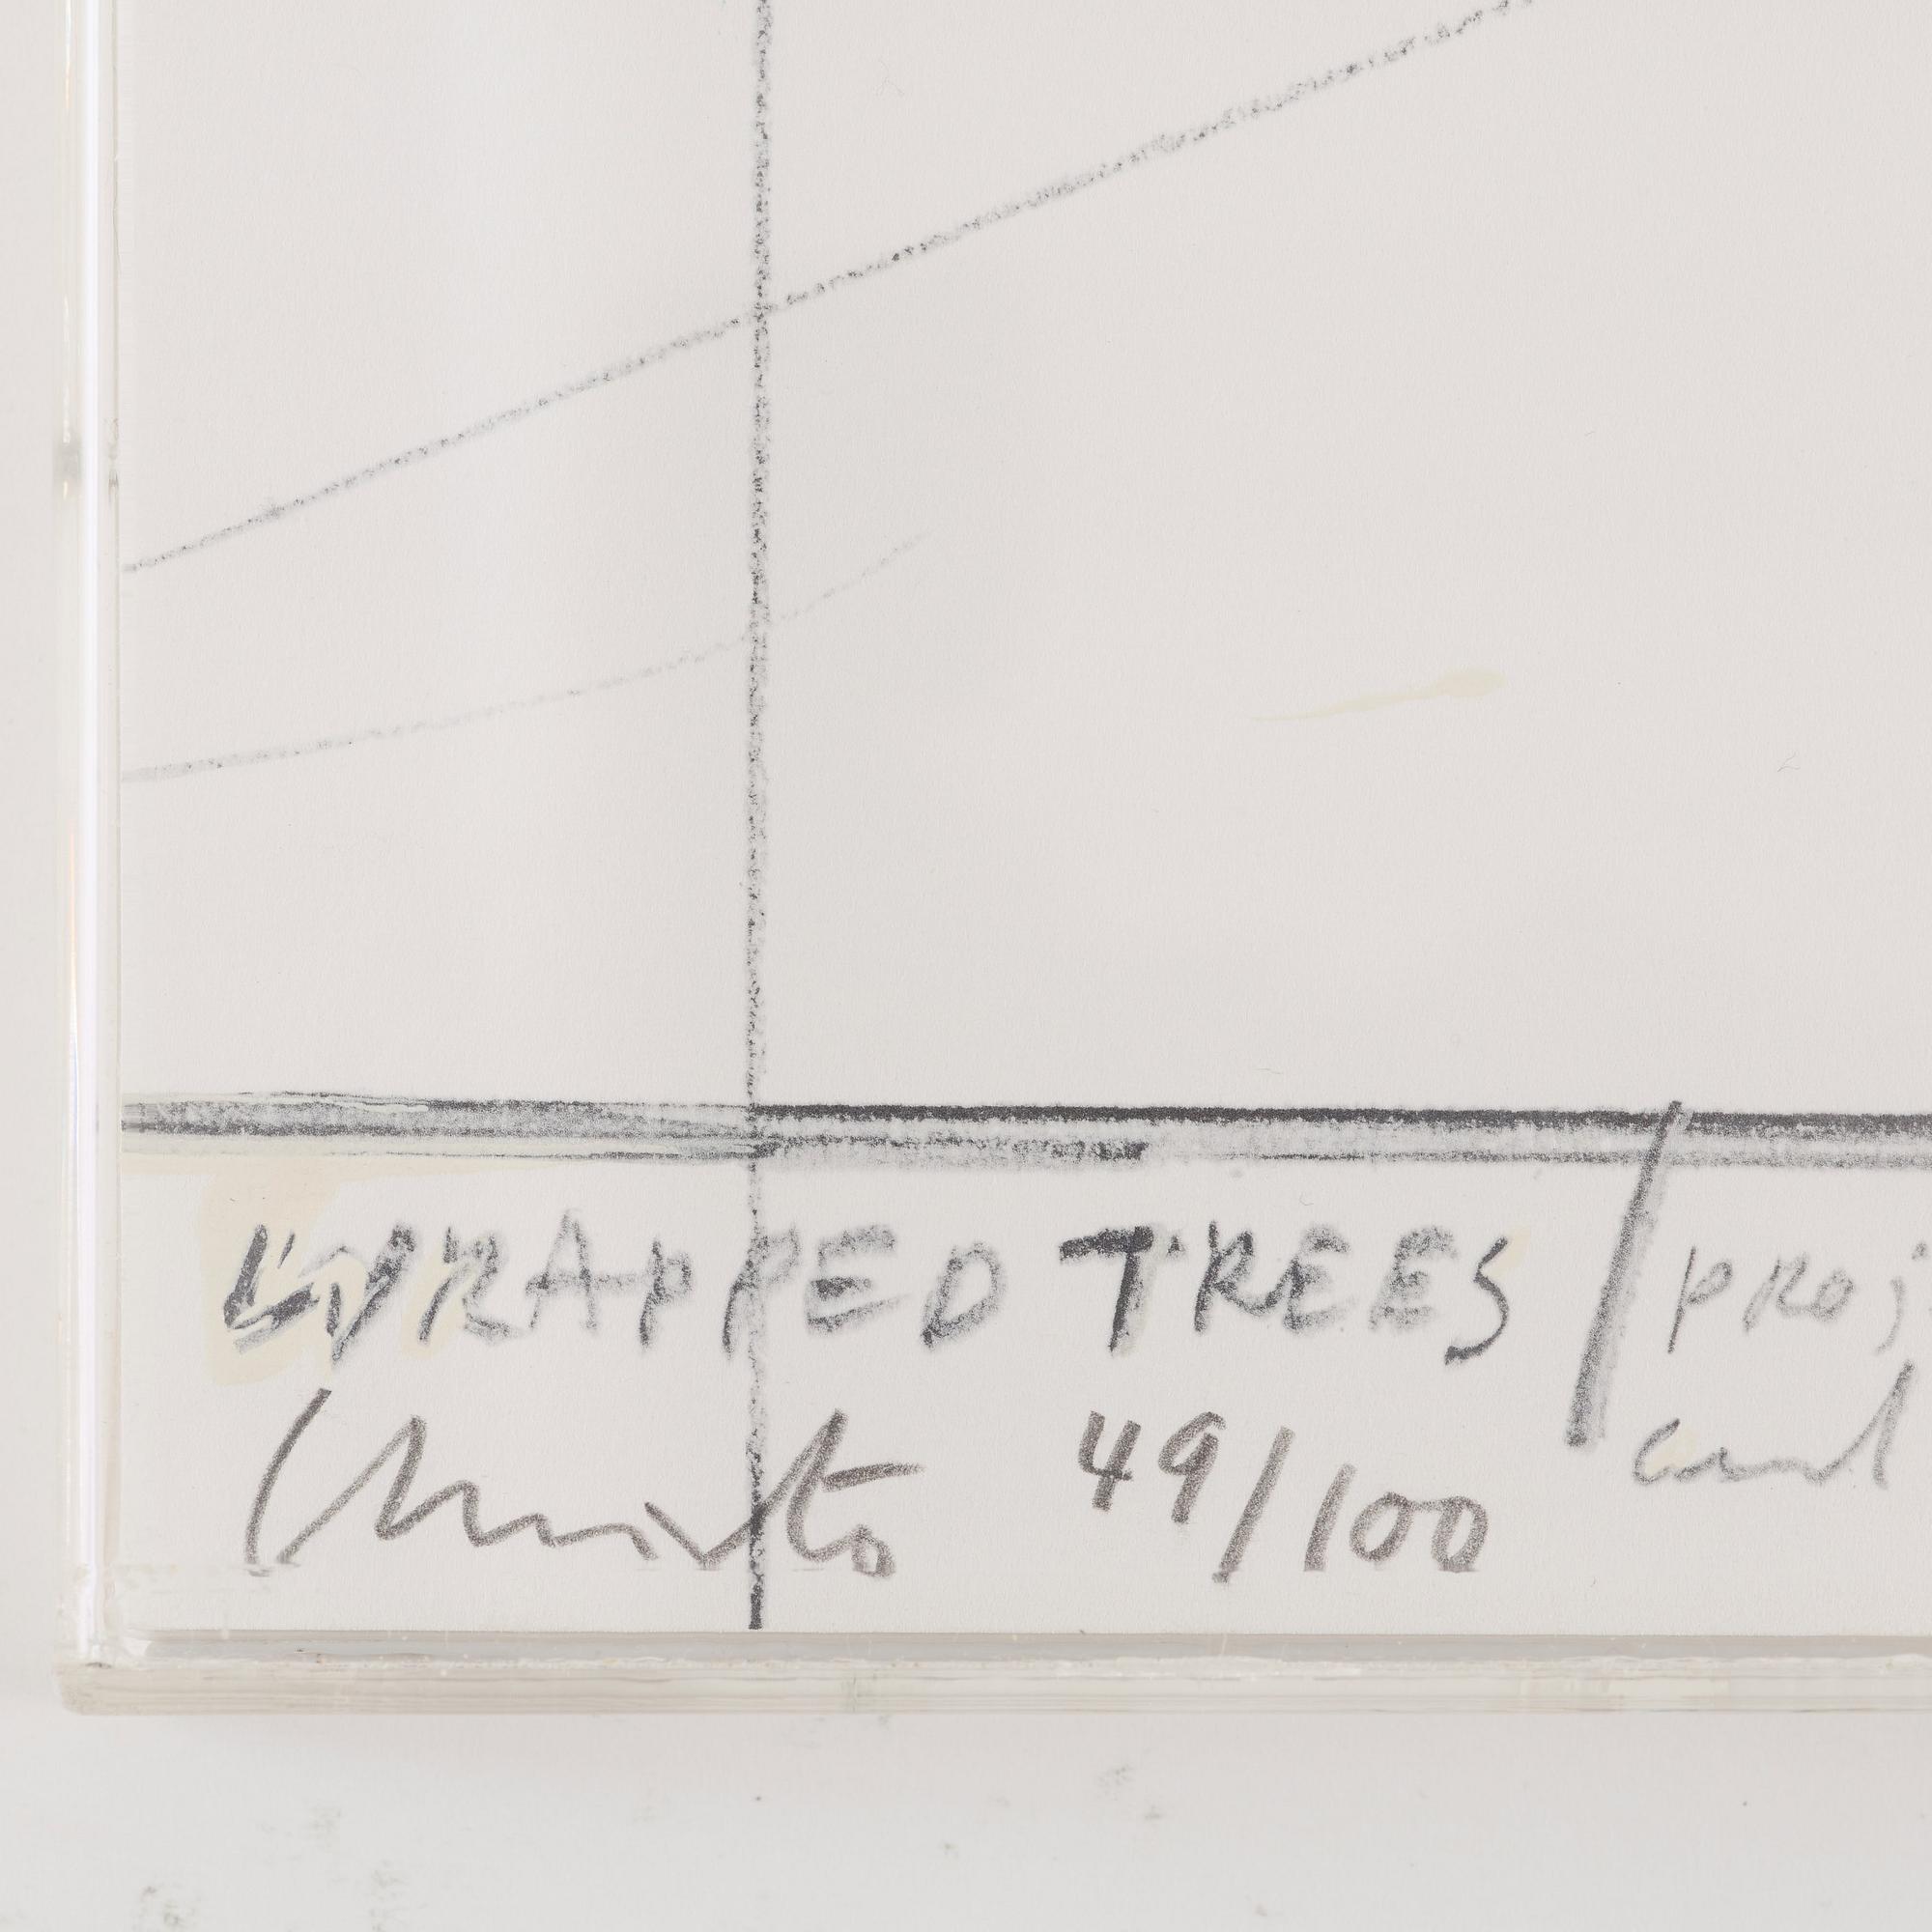 WRAPPED TREES / PROJ
Christo 49/100